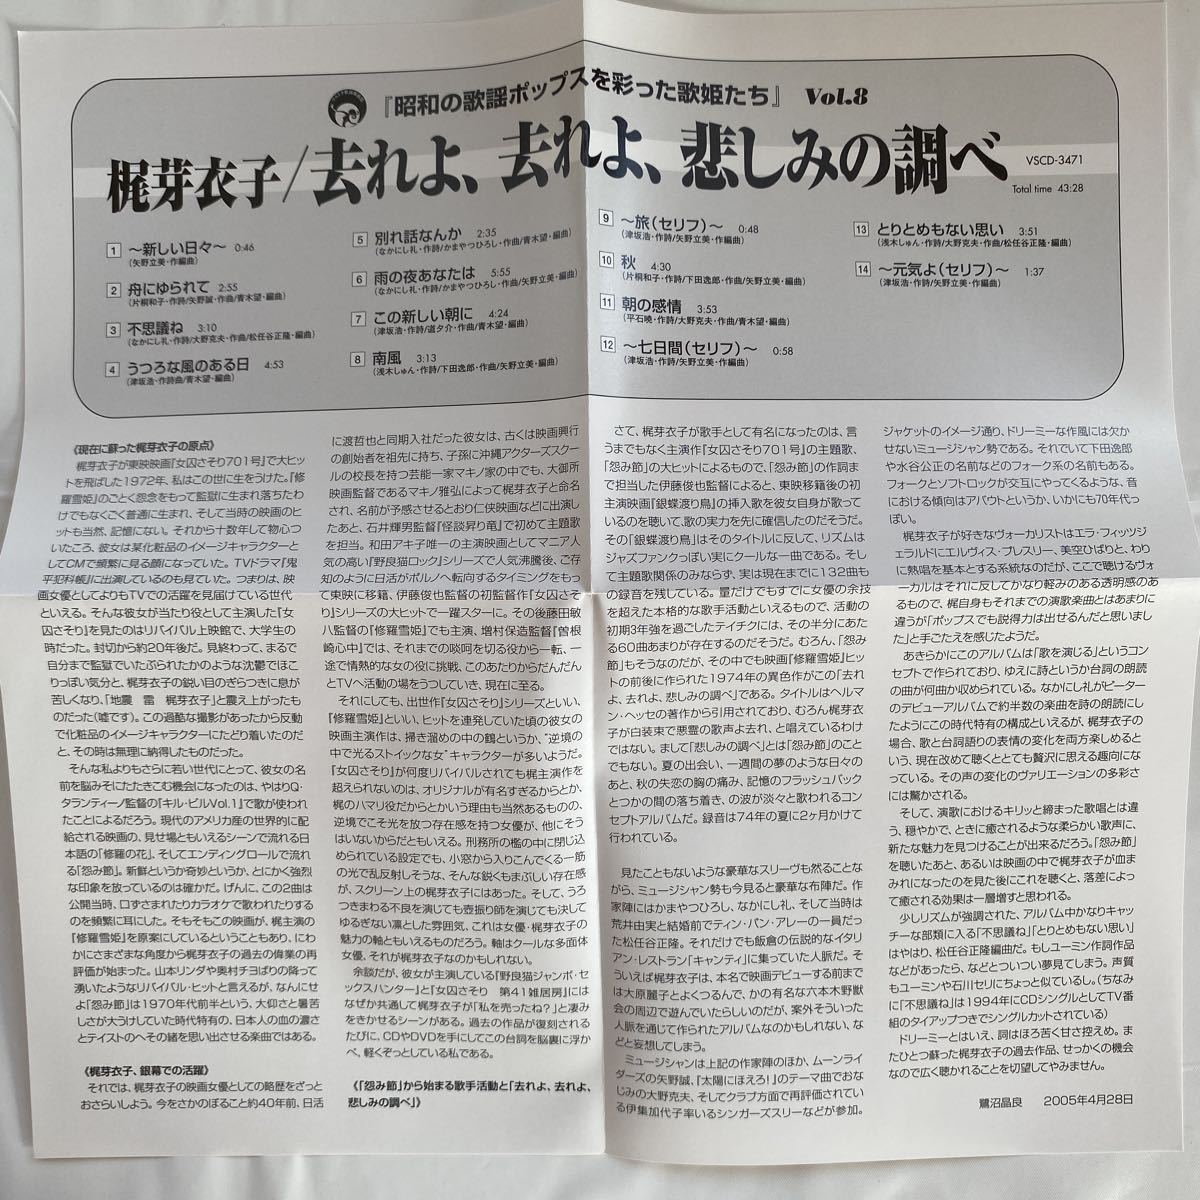 『昭和の歌謡ポップスを彩った歌姫たち』 Vol.8
梶芽衣子/去れよ、去れよ、悲しみの調べ
VSCD-3471
Total time 43:28
1 〜新しい日々〜 0:46
(矢野立美・作編曲)
2 舟にゆられて 2:55
(片桐和子・作詩/矢野誠・作曲/青木望・編曲)
3 不思議ね 3:10
(なかにし礼・作詩/大野克夫・作曲/松任谷正隆・編曲)
4 うつろな風のある日 4:53
(津坂浩・作詩曲/青木望・編曲)
5 別れ話なんか 2:35
(なかにし礼・作詩/かまやつひろし・作曲/青木望・編曲)
6 雨の夜あなたは 5:55
(なかにし礼・作詩/かまやつひろし・作曲/矢野立美・編曲)
7 この新しい朝に 4:24
(津坂浩・作詩/道夕介・作曲/青木望・編曲)
8 南風 3:13
(浅木しゅん・作詩/下田逸郎・作曲/矢野立美・編曲)
9 〜旅(セリフ)〜 0:48
(津坂浩・作詩/矢野立美・作編曲)
10 秋 4:30
(片桐和子・作詩/下田逸郎・作曲/矢野立美・編曲)
11 朝の感情 3:53
(平石暁・作詩/大野克夫・作曲/青木望・編曲)
12 〜七日間(セリフ)〜 0:58
(津坂浩・作詩/矢野立美・作編曲)
13 とりとめもない思い 3:51
(浅木しゅん・作詩/大野克夫・作曲/松任谷正隆・編曲)
14 〜元気よ(セリフ)〜 1:37
(津坂浩・作詩/矢野立美・作編曲)
《現在に蘇った梶芽衣子の原点》
梶芽衣子が東映映画『女囚さそり701号』で大ヒッ
トを飛ばした1972年、私はこの世に生をうけた。『修
羅雪姫』のごとく怨念をもって監獄に生まれ落ちたわ
けでもなくごく普通に生まれ、そして当時の映画のヒ
ットも当然、記憶にない。それから十数年して物心つ
いたころ、彼女は某化粧品のイメージキャラクターと
してCMで頻繁に見る顔になっていた。TVドラマ『鬼
平犯科帳』に出演しているのも見ていた。つまりは、映
画女優としてよりもTVでの活躍を見届けている世代
といえる。そんな彼女が当たり役として主演した『女
囚さそり』を見たのはリバイバル上映館で、大学生の
時だった。封切から約20年後だ。見終わって、まるで
自分まで監獄でいたぶられたかのような沈鬱でほこ
りっぽい気分と、梶芽衣子の鋭い目のぎらつきに息が
苦しくなり、「地震 雷 梶芽衣子」と震え上がったも
のだった(嘘です)。この過酷な撮影があったから反動
で化粧品のイメージキャラクターにたどり着いたのだ
と、その時は無理に納得したものだった。
そんな私よりもさらに若い世代にとって、彼女の名
前を脳みそにたたきこむ機会になったのは、やはりQ・
タランティーノ監督の『キル・ビルVol.1』で歌が使われ
たことによるだろう。現代のアメリカ産の世界的に配
給される映画の、見せ場ともいえるシーンで流れる日
本語の「修羅の花」、そしてエンディングロールで流れ
る「怨み節」。新鮮というか奇妙というか、とにかく強烈
な印象を放っているのは確かだ。げんに、この2曲は
公開当時、口ずさまれたりカラオケで歌われたりする
のを頻繁に耳にした。そもそもこの映画が、梶主演の
『修羅雪姫』を原案にしているということもあり、にわ
かにさまざまな角度から梶芽衣子の過去の偉業の再
評価が始まった。山本リンダや奥村チヨばりの降って
湧いたようなリバイバル・ヒットと言えるが、なんにせ
よ「怨み節」は1970年代前半という、大仰さと暑苦
しさが大うけしていた時代特有の、日本人の血の濃さ
とテイストのへその緒を思い出させる楽曲ではある。
《梶芽衣子、銀幕での活躍》
それでは、梶芽衣子の映画女優としての略歴をざっと
おさらいしよう。今をさかのぼること約40年前、日活
に渡哲也と同期入社だった彼女は、古くは映画興行
の創始者を祖先に持ち、子孫に沖縄アクターズスクー
ルの校長を持つ芸能一家マキノ家の中でも、大御所
映画監督であるマキノ雅弘によって梶芽衣子と命名
され、名前が予感させるとおり仁侠映画などに出演し
たあと、石井輝男監督『怪談昇り竜』で初めて主題歌
を担当。和田アキ子唯一の主演映画としてマニア人
気の高い『野良猫ロック』シリーズで人気沸騰後、ご存
知のように日活がポルノへ転向するタイミングをもっ
て東映に移籍、伊藤俊也監督の初監督作『女囚さそ
り』シリーズの大ヒットで一躍スターに。その後藤田敏
八監督の『修羅雪姫』でも主演、増村保造監督『曽根
崎心中』では、それまでの啖呵を切る役から一転、一
途で情熱的な女の役に挑戦、このあたりからだんだん
とTVへ活動の場をうつしていき、現在に至る。
それにしても、出世作『女囚さそり』シリーズといい、
『修羅雪姫』といい、ヒットを連発していた頃の彼女の
映画主演作は、掃き溜めの中の鶴というか、“逆境の
中で光るストイックな女”キャラクターが多いようだ。
『女囚さそり』が何度リバイバルされても梶主演作を
超えられないのは、オリジナルが有名すぎるからとか、
梶のハマリ役だからとかいう理由も当然あるものの、
逆境でこそ光を放つ存在感を持つ女優が、他にそう
はいないからだともいえる。刑務所の檻の中に閉じ込
められている設定でも、小窓から入りこんでくる一筋
の光で乱反射しそうな、そんな鋭くもまぶしい存在感
が、スクリーン上の梶芽衣子にはあった。そして、うろ
つきまわる不良を演じても壺振り師を演じても決して
ゆるぎない凛とした雰囲気、これは女優・梶芽衣子の
魅力の軸ともいえるものだろう。軸はクールな多面体
女優、それが梶芽衣子なのかもしれない。
余談だが、彼女が主演している『野良猫ジャンボ・セ
ックスハンター』と『女囚さそり 第41雑居房』には
なぜか共通して梶芽衣子が「私を売ったね?」と凄み
をきかせるシーンがある。過去の作品が復刻される
たびに、CDやDVDを手にしてこの台詞を脳裏に浮か
べ、軽くぞっとしている私である。
《「怨み節」から始まる歌手活動と「去れよ、去れよ、
悲しみの調べ」》
さて、梶芽衣子が歌手として有名になったのは、言
うまでもなく主演作『女囚さそり701号』の主題歌、
「怨み節」の大ヒットによるもので、「怨み節」の作詞ま
で担当した伊藤俊也監督によると、東映移籍後の初
主演映画『銀蝶渡り鳥』の挿入歌を彼女自身が歌って
いるのを聴いて、歌の実力を先に確信したのだそうだ。
その「銀蝶渡り鳥」はそのタイトルに反して、リズムは
ジャズファンクっぽい実にクールな一曲である。そし
て主題歌関係のみならず、実は現在までに132曲も
の録音を残している。量だけでもすでに女優の余技
を超えた本格的な歌手活動といえるもので、活動の
初期3年強を過ごしたテイチクには、その半分にあた
る60曲あまりが存在するのだそうだ。むろん、「怨み
節」もそうなのだが、その中でも映画『修羅雪姫』ヒッ
トの前後に作られた1974年の異色作がこの「去れ
よ、去れよ、悲しみの調べ」である。タイトルはヘルマ
ン・ヘッセの著作から引用されており、むろん梶芽衣
子が白装束で悪霊の歌声去れよ、と唱えているわけ
ではない。まして「悲しみの調べ」とは「怨み節」のこと
でもない。夏の出会い、一週間の夢のような日々のの
あと、秋の失恋の胸の痛み、記憶のフラッシュバック
とつかの間の落ち着き、の波が淡々と歌われるコン
セプトアルバムだ。録音は74年の夏に2ヶ月かけて
行われている。
見たこともないような豪華なスリーヴも然ることな
がら、ミュージシャン勢も今見ると豪華な布陣だ。作
家陣にはかまやつひろし、なかにし礼、そして当時は
荒井由実と結婚前でティン・パン・アレーの一員だっ
た松任谷正隆。それだけでも飯倉の伝説的なイタリ
アン・レストラン「キャンティ」に集っていた人脈だ。そ
ういえば梶芽衣子は、本名で映画デビューする前まで
は大原麗子とよくつるんで、かの有名な六本木野獣
会の周辺で遊んでいたらしいのだが、案外そういった
人脈を通じて作られたアルバムなのかもしれない、な
どと妄想してしまう。
ミュージシャンは上記の作家陣のほか、ムーンライ
ダーズの矢野誠、『太陽にほえろ!』のテーマ曲でおな
じみの大野克夫、そしてクラブ方面で再評価されてい
る伊集加代子率いるシンガーズスリーなどが参加。
ジャケットのイメージ通り、ドリーミーな作風には欠か
せないミュージシャン勢である。それでいて下田逸郎
や水谷公正の名前などのフォーク系の名前もある。
フォークとソフトロックが交互にやってくるような、音
における傾向はアバウトというか、いかにも70年代っ
ぽい。
梶芽衣子が好きなヴォーカリストはエラ・フィッツジ
ェラルドにエルヴィス・プレスリー、美空ひばりと、わり
に熱唱を基本とする系統なのだが、ここで聴けるヴォ
ーカルはそれに反してかなり軽みのある透明感のあ
るもので、梶自身もそれまでの演歌楽曲とはあまりに
違うが「ポップスでも説得力は出せるんだと思いまし
た」と手ごたえを感じたようだ。
あきらかにこのアルバムは「歌を演じる」というコン
セプトで作られており、ゆえに詩というか台詞の朗読
の曲が何曲か収められている。なかにし礼がピーター
のデビューアルバムで約半数の楽曲を詩の朗読にし
たようにこの時代特有の構成といえるが、梶芽衣子の
場合、歌と台詞語りの表情の変化を両方楽しめると
いう、現在改めて聴くととても贅沢に思える趣向にな
っている。その声の変化のヴァリエーションの多彩さ
には驚かされる。
そして、演歌におけるキリッと締まった歌唱とは違
う、穏やかで、ときに癒されるような柔らかい歌声に、
新たな魅力を見つけることが出来るだろう。「怨み節」
を聴いたあと、あるいは映画の中で梶芽衣子が血ま
みれになったのを見た後にこれを聴くと、落差によっ
て癒される効果は一層増すと思われる。
少しリズムが強調された、アルバム中かなりキャッ
チーな部類に入る「不思議ね」「とりとめもない思い」
はやはり、松任谷正隆編曲だ。もしユーミン作詞作品
などがあったら、などとついつい夢見てしまう。声質
もユーミンや石川セリにちょっと似ているし。(ちなみ
に「不思議ね」は1994年にCDシングルとしてTV番
組のタイアップつきでシングルカットされている)
ドリーミーとはいえ、詞はほろ苦くせつさ控えめ。ま
たひとつ蘇った梶芽衣子の過去作品、せっかくの機会
なので広く聴かれることを切望してやみません。
鷺沼晶良 2005年4月28日